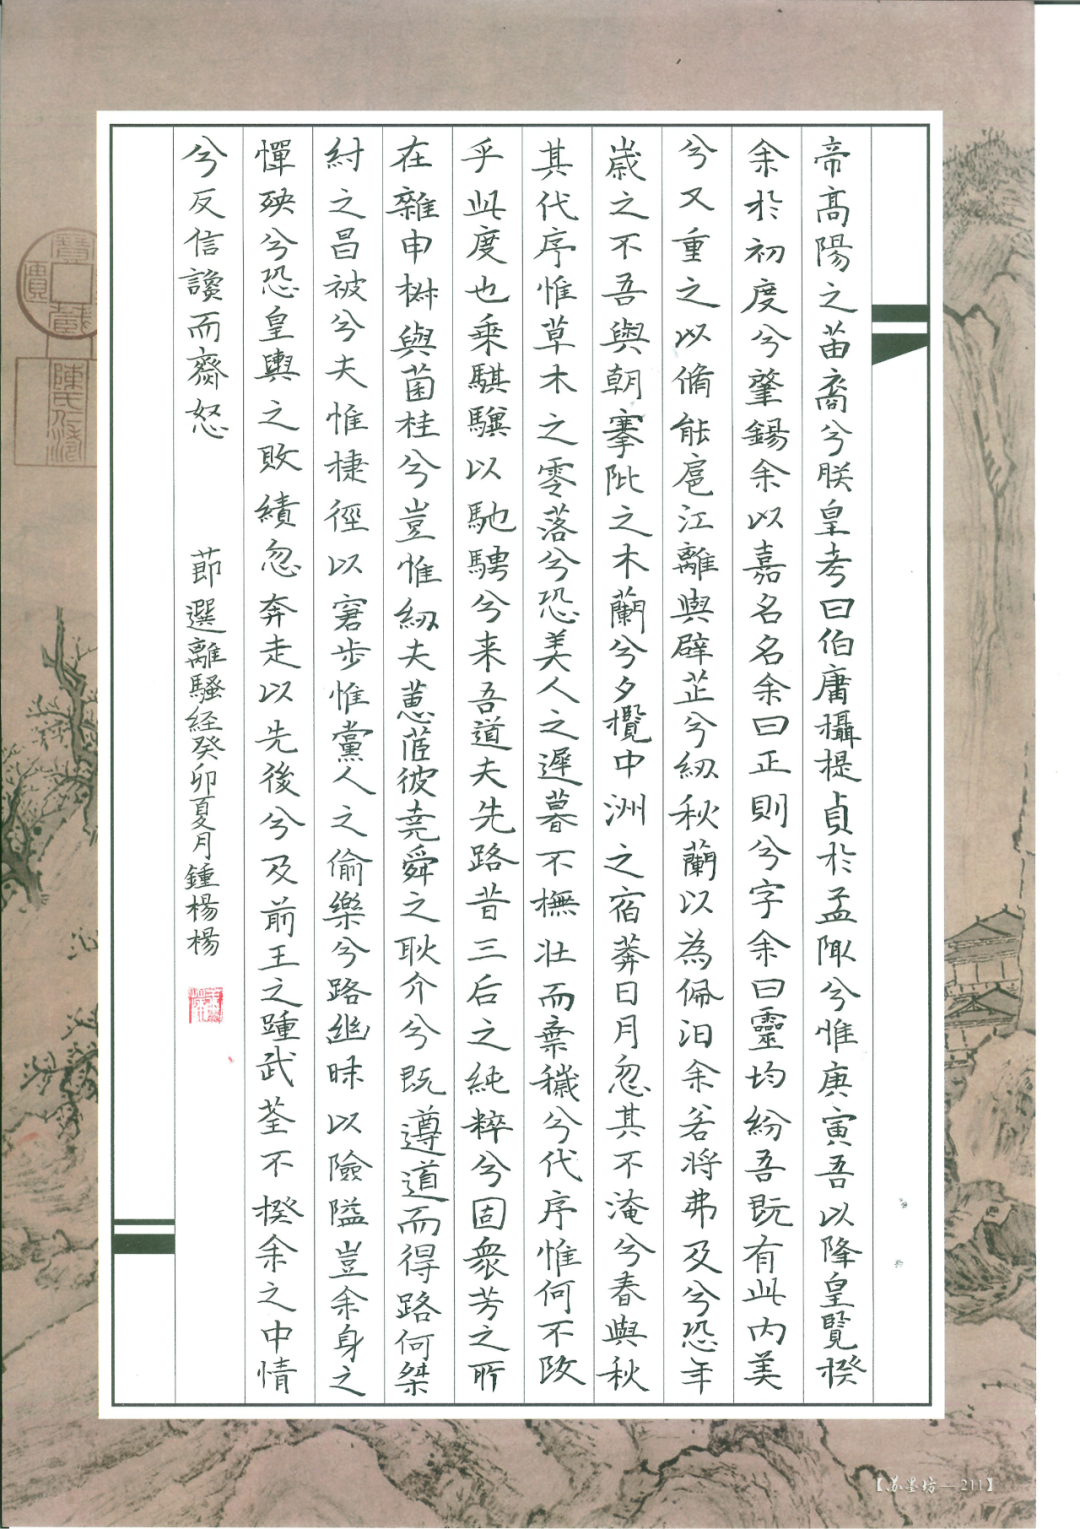 帝高陽之苗裔兮朕皇考曰伯庸攝提貞於孟陬兮惟庚寅吾以降皇覽揆
余於初度兮肇錫余以嘉名名余曰正則兮字余曰靈均紛吾既有此內美
兮又重之以脩能扈江離與辟芷兮紉秋蘭以為佩汨余若將弗及兮恐年
歲之不吾與朝搴阰之木蘭兮夕攬中洲之宿莽日月忽其不淹兮春與秋
其代序惟草木之零落兮恐美人之遲暮不撫壯而棄穢兮代序惟何不改
乎此度也乘騏驥以馳騁兮来吾道夫先路昔三后之純粹兮固衆芳之所
在雜申椒與菌桂兮豈惟紉夫蕙茝彼堯舜之耿介兮既遵道而得路何桀
紂之昌被兮夫惟捷徑以窘步惟黨人之偷樂兮路幽昧以險隘豈余身之
憚殃兮恐皇輿之敗績忽奔走以先後兮及前王之踵武荃不揆余之中情
兮反信讒而齌怒
節選離騷经癸卯夏月鍾楊楊
陳氏
【苏墨坊—211】